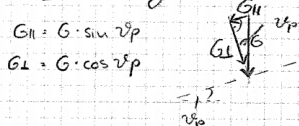 G∥ = G · sin ϑp
G⊥ = G · cos ϑp
G∥
ϑp
G⊥
G
ϑp